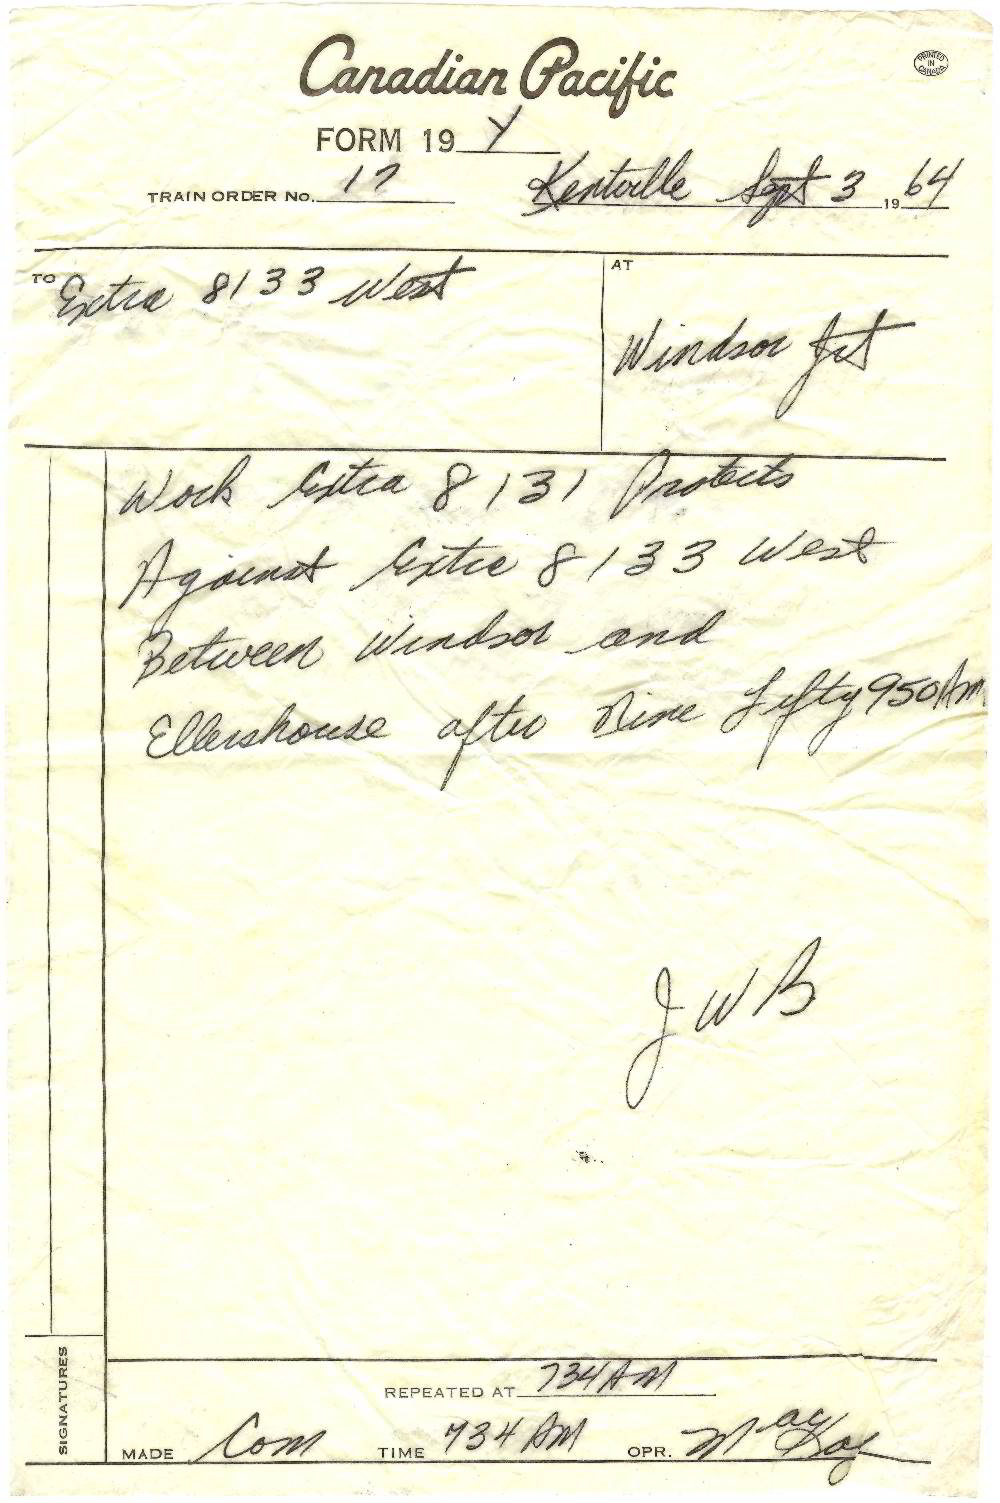 Canadian Pacific
PRINTED IN CANADA
FORM 19 Y
TRAIN ORDER No. 17
Kentville Sept 3 1964
TO Extra 8133 West
AT
Windsor Jct
Work Extra 8131 Protects
Against Extra 8133 West
Between Windsor and
Ellershouse after Nine Fifty 950 AM
JWB
REPEATED AT 734 AM
SIGNATURES
MADE Com TIME 734 AM OPR. MacKay